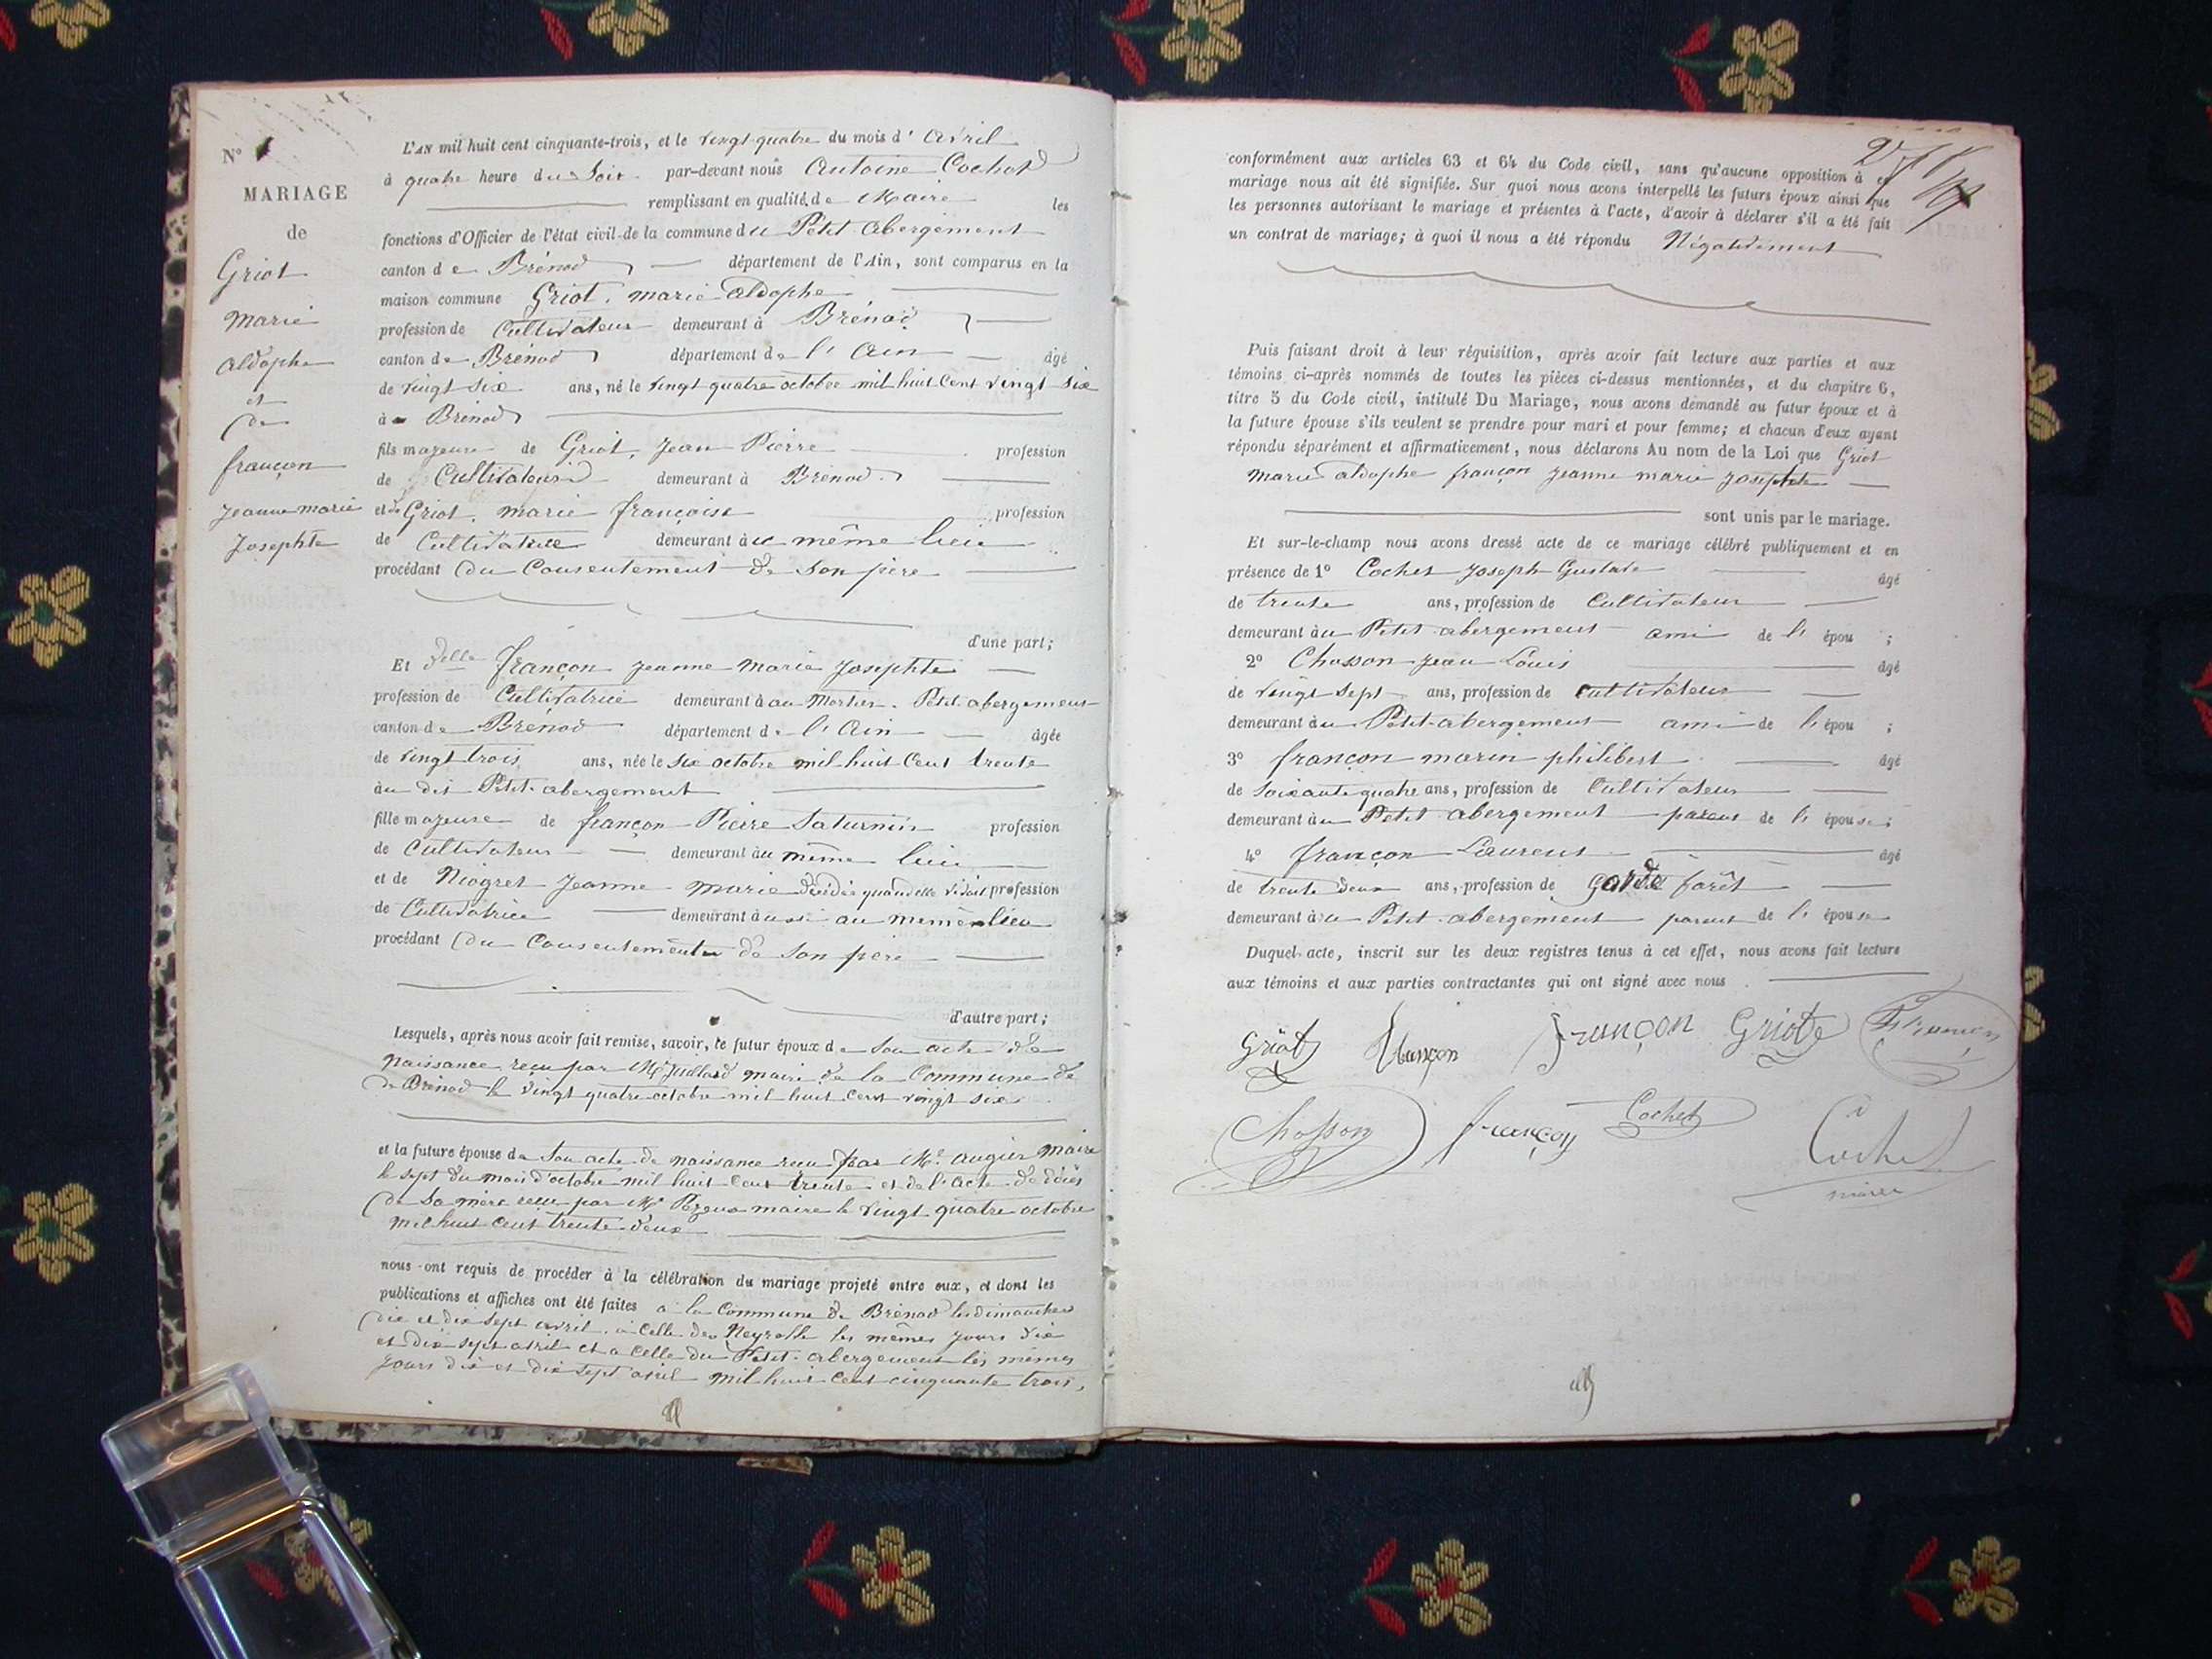 N°
MARIAGE
de
Griot
Marie
aldophe
et
de
françon
jeanne marie
Josephte
L'AN mil huit cent cinquante-trois, et le vingt quatre du mois d' avril
à quatre heure du Soir par-devant nous Antoine Cochet
remplissant en qualité de Maire les
fonctions d'Officier de l'état civil de la commune du Petit abergement
canton de Brénod département de l'Ain, sont comparus en la
maison commune Griot, marie aldophe
profession de Cultivateur demeurant à Brénod
canton de Brénod département de l'Ain âgé
de vingt six ans, né le vingt quatre octobre mil huit Cent vingt six
à Brénod
fils majeur de Griot, Jean Pierre profession
de Cultivateur demeurant à Brénod
et de Griot, marie françoise profession
de Cultivatrice demeurant au même lieu
procédant du Consentement de Son père
d'une part;
Et delle françon jeanne marie josephte
profession de Cultivatrice demeurant à au Mortier. Petit abergement
canton de Brénod département de l'Ain âgée
de vingt trois ans, née le six octobre mil huit Cent trente
au dit Petit abergement
fille majeure de françon Pierre Saturnin profession
de Cultivateur demeurant au même lieu
et de Niogret Jeanne Marie décédée quand elle vivait profession
de Cultivatrice demeurant aussi au même lieu
procédant du Consentement de Son père
d'autre part;
Lesquels, après nous avoir fait remise, savoir, le futur époux de Son acte de
naissance reçu par Mr Juillard maire de la Commune de
de Brénod le vingt quatre octobre mil huit Cent vingt six
et la future épouse de Son acte de naissance reçu par Mr augier maire
le sept du mois d'octobre mil huit Cent trente et de l'acte de décès
de Sa mère reçu par Mr maire le vingt quatre octobre
mil huit Cent trente deux
nous ont requis de procéder à la célébration du mariage projeté entre eux, et dont les
publications et affiches ont été faites à la Commune de Brénod les dimanches
dix et dix sept avril, à Celle des Neyrolle les mêmes jours dix
et dix sept avril et à Celle du Petit abergement les mêmes
jours dix et dix sept avril mil huit Cent cinquante trois,
conformément aux articles 63 et 64 du Code civil, sans qu'aucune opposition à ce
mariage nous ait été signifiée. Sur quoi nous avons interpellé les futurs époux ainsi que
les personnes autorisant le mariage et présentes à l'acte, d'avoir à déclarer s'il a été fait
un contrat de mariage; à quoi il nous a été répondu Négativement
Puis faisant droit à leur réquisition, après avoir fait lecture aux parties et aux
témoins ci-après nommés de toutes les pièces ci-dessus mentionnées, et du chapitre 6,
titre 5 du Code civil, intitulé Du Mariage, nous avons demandé au futur époux et à
la future épouse s'ils veulent se prendre pour mari et pour femme; et chacun d'eux ayant
répondu séparément et affirmativement, nous déclarons Au nom de la Loi que Griot
marie aldophe françon jeanne marie josephte
sont unis par le mariage.
Et sur-le-champ nous avons dressé acte de ce mariage célébré publiquement et en
présence de 1° Cochet Joseph Gustave âgé
de trente ans, profession de Cultivateur
demeurant au Petit abergement ami de l' épou ;
2° Chosson jean Louis âgé
de vingt sept ans, profession de cultivateur
demeurant au Petit abergement ami de l' épou ;
3° françon marin philibert âgé
de soixante quatre ans, profession de Cultivateur
demeurant au Petit abergement parent de l' épouse;
4° françon Laurent âgé
de trente deux ans, profession de garde forêt
demeurant au Petit abergement parent de l' épouse
Duquel acte, inscrit sur les deux registres tenus à cet effet, nous avons fait lecture
aux témoins et aux parties contractantes qui ont signé avec nous .
Griot françon françon Griot
Chosson françon Cochet Cochet
maire